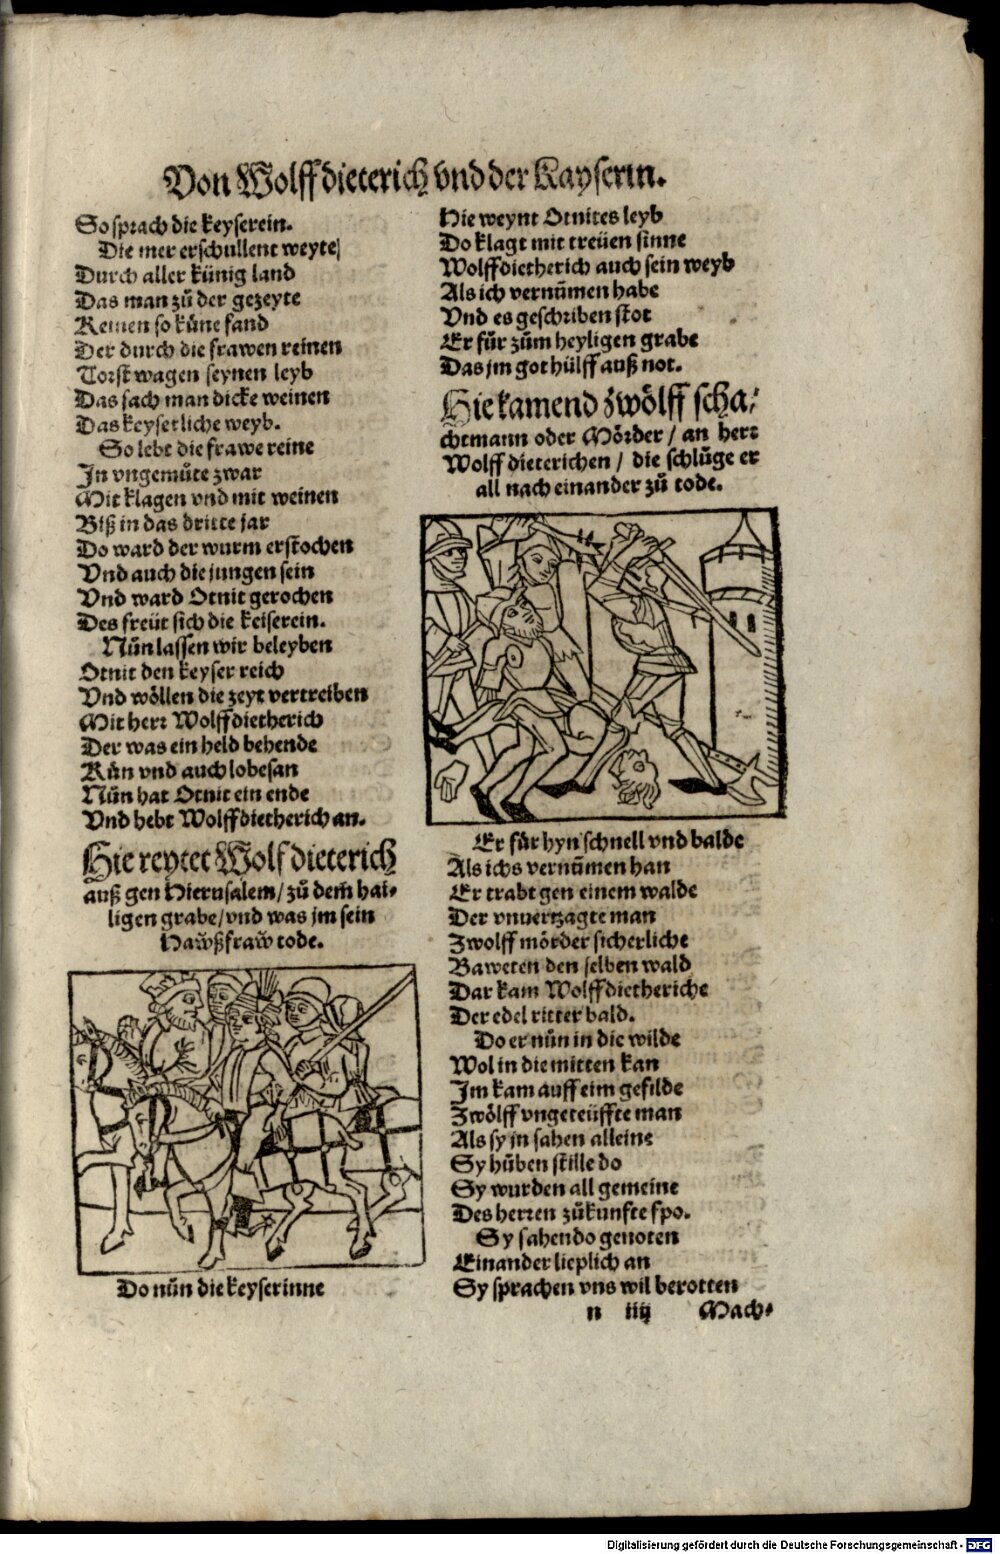 Von Wolffdieterich vnd der Kayserin.
So sprach die keyserein.
Die mer erschullent weyte
Durch aller künig land
Das man zů der gezeyte
Keinen so küne fand
Der durch die frawen reinen
Torst wagen seynen leyb
Das sach man dicke weinen
Das keyserliche weyb.
So lebt die frawe reine
In vngemůte zwar
Mit klagen vnd mit weinen
Biß in das dritte jar
Do ward der wurm erstochen
Vnd auch die jungen sein
Vnd ward Otnit gerochen
Des freüt sich die keiserein.
Nůn lassen wir beleyben
Otnit den keyser reich
Vnd wöllen die zeyt vertreiben
Mit herr Wolffdietherich
Der was ein held behende
Kün vnd auch lobesan
Nůn hat Otnit ein ende
Vnd hebt Wolffdietherich an.
Hie reytet Wolfdieterich
auß gen Hierusalem/ zů dem̄ hai-
ligen grabe/ vnd was jm sein
Haẅßfraẅ tode.
Do nůn die keyserinne
Hie weynt Otnites leyb
Do klagt mit treüen sinne
Wolffdietherich auch sein weyb
Als ich vernūmen habe
Vnd es geschriben stot
Er fůr zům heyligen grabe
Das jm got hülff auß not.
Hie kamend zwölff scha-
chtmann oder Mörder/ an herr
Wolff dieterichen/ die schlůge er
all nach einander zů tode.
Er fůr hyn schnell vnd balde
Als ichs vernūmen han
Er trabt gen einem walde
Der vnuertzagte man
Zwolff mörder sicherliche
Baweten den selben wald
Dar kam Wolffdietheriche
Der edel ritter bald.
Do er nůn in die wilde
Wol in die mitten kan
Im kam auff eim gefilde
Zwölff vngeteüffte man
Als sy jn sahen alleine
Sy hůben stille do
Sy wurden all gemeine
Des herren zůkunfte fro.
Sy sahen do genoten
Einander lieplich an
Sy sprachen vns wil berotten
n iiij Mach-
Digitalisierung gefördert durch die Deutsche Forschungsgemeinschaft - DFG